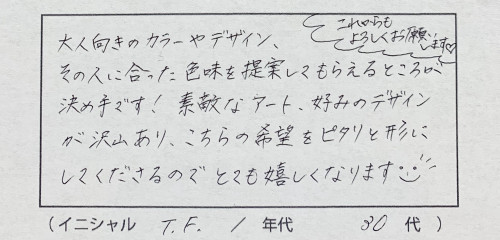 これからも
よろしくお願い
します♡
大人向きのカラーやデザイン、
その人に合った色味を提案してもらえるところが
決め手です！素敵なアート、好みのデザイン
が沢山あり、こちらの希望をピタリと形に
してくださるのでとても嬉しくなります
(イニシャル T.F. / 年代 30代)